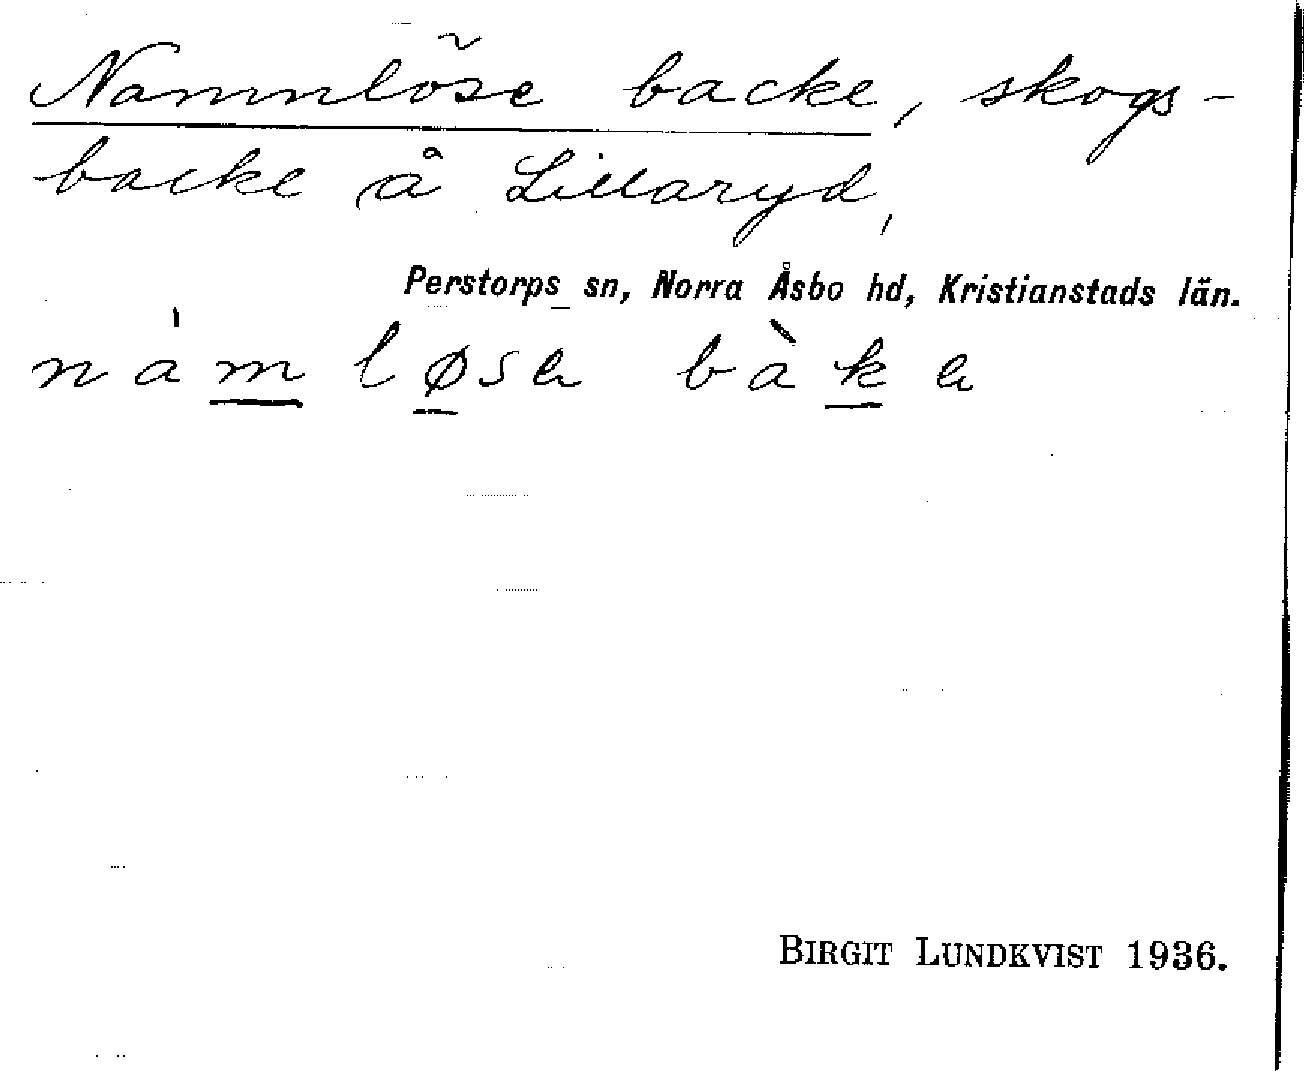 Namnlöse backe, skogs-
backe å Lillaryd,
Perstorps sn, Norra Åsbo hd, Kristianstads län.
nàmløsɐ bàkɐ
BIRGIT LUNDKVIST 1936.